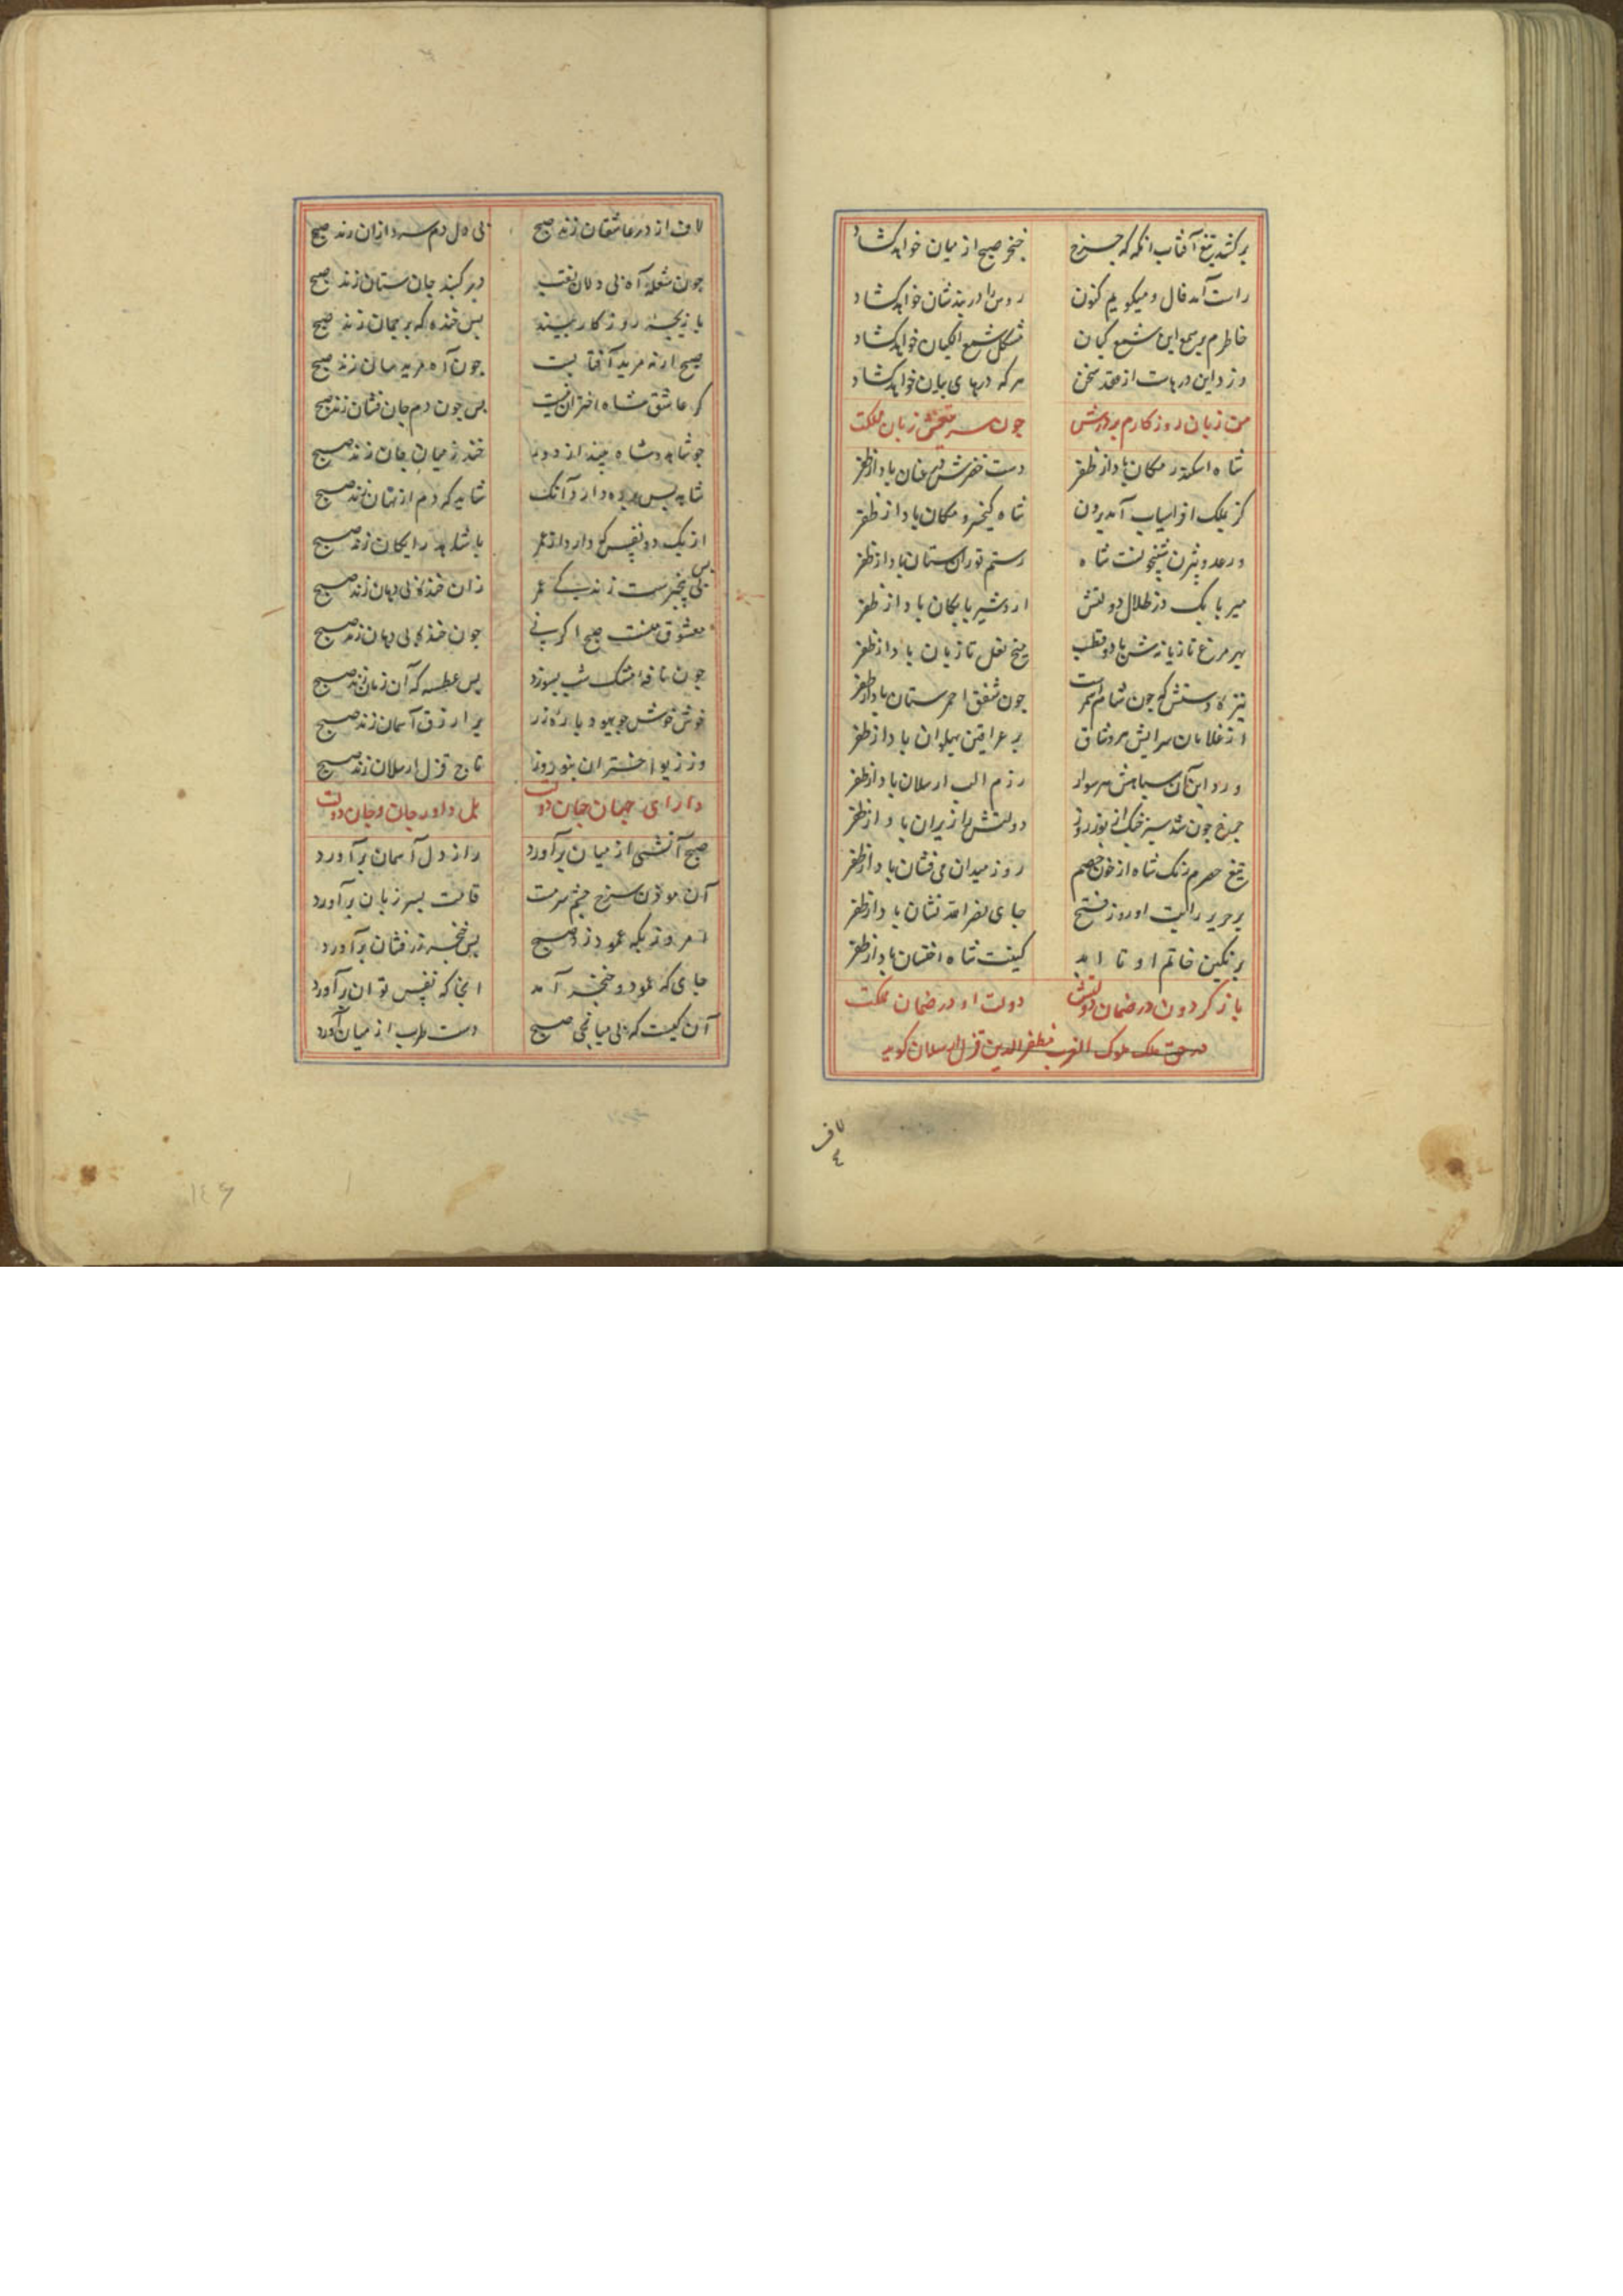 برکشد تیغ آفتاب انکه که چرخ خنجر صبح از میان خواهد کشاد
راست آمد فال و میکویم کنون روس را در بند شان خواهد کشاد
خاطرم بر سمع این شمع کیان مشکل شمع الکیان خواهد کشاد
وز داین در هاست از عقد سخن هر که درهای بیان خواهد کشاد
من زبان روزکارم بر درش چون سر تیغش زبان مملکت
شاه اسکندر مکان باد از ظفر دست خضرش هم عنان باد از ظفر
کز ملک افراسیاب آمد برون شاه کیخسرو مکان باد از ظفر
ور عدو بیژن شبیخونست شاه رستم توران ستان باد از ظفر
میر بابک در ظلال دولتش اردشیر بابکان باد از ظفر
بهر مرغ تازیانش باد و قطب میخ نعل تازیان باد از ظفر
تیز که دستش که چون شام احمرست چون شفق احمر سنان باد از ظفر
از غلامان سرایش هر وثاق بر عراقین پهلوان باد از ظفر
ور داین آن سپاهش هر سوار رزم الب ارسلان باد از ظفر
چرخ چون شد سبز خنک از نور روز دولتش را زیر ران باد از ظفر
تیغ حصرم رنک شاه از خون خصم روز میدان می فشان باد از ظفر
بر حریر رایت او روز فتح جای نصر الله نشان باد از ظفر
بر نکین خاتم او تا ابد کینت شاه اخستان باد از ظفر
باز کردون در ضمان دولتش دولت او در ضمان مملکت
در حق ملک ملوک العرب مظفر الدین قزل ارسلان کوید
لاف
لاف از در عاشقان زند صبح بی دل دم سرد از ان زند صبح
چون شعله آه بی دلان نقب در کنبد جان ستان زند صبح
بازیچه روزکار بیند بس خنده که بر جهان زند صبح
صبح ار نه مرید آفتابست چون آه مریدسان زند صبح
کر عاشق شاه اختران نیست بس چون دم جان فشان زند صبح
چو شاهد شاه بیند از دور خنده ز میان جان زند صبح
شاید پس پرده دارد آنک شاید که دم از نهان زند صبح
از یک دو نفس که دارد از عمر با شاهد رایکان زند صبح
بس بی خبرست زندکی عمر زان خنده بی دهان زند صبح
معشوق منست صبح اکر نی چون خنده بی دهان زند صبح
چون نافه مشک شب بسوزد بس عطسه که آن زمان زند صبح
خوش خوش چو یهود پاره زر بر ازرق آسمان زند صبح
وز زیور اختران بنوروز تاج قزل ارسلان زند صبح
دارای جهان جهان دولت بل داور جان و جان دولت
صبح آتشی از میان برآورد راز دل آسمان برآورد
آن موذن سرخ چشم سرمست قامت بسر زبان برآورد
امروز بکه عمود زد صبح بس خنجر زر فشان برآورد
جای که عمود و خنجر آمد انجا که نفس توان برآورد
آن کیست که بی میانجی صبح دست طرب از میان برآورد
۱۴۶